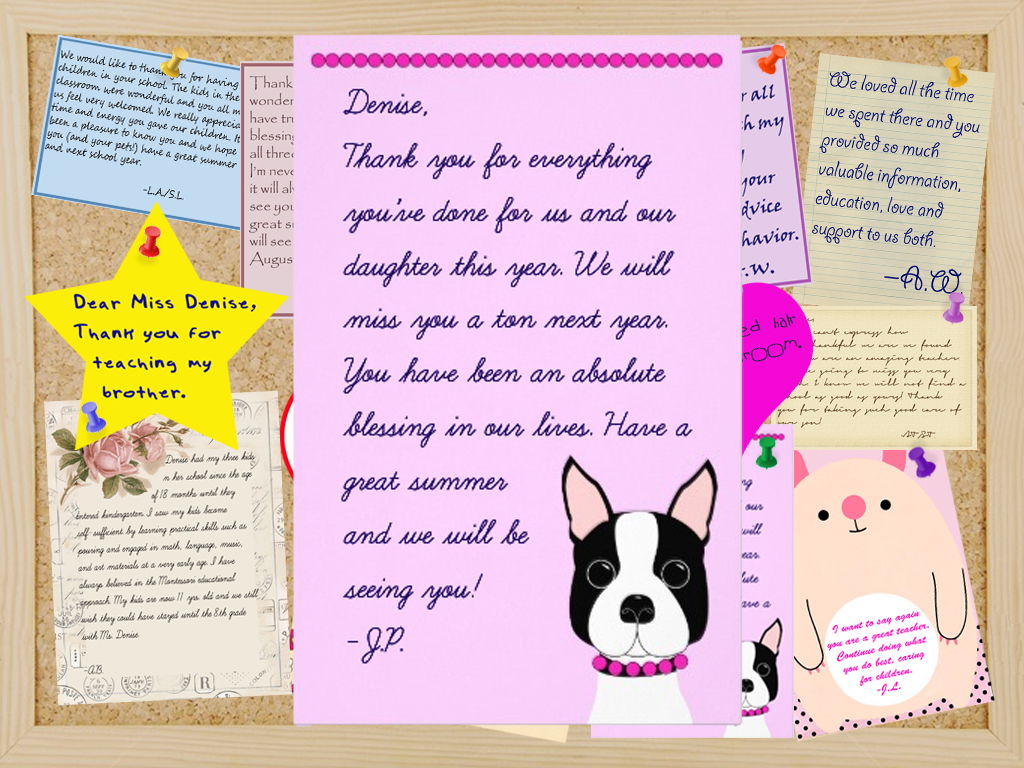 We would like to thank you for having
children in your school. The kids in the
classroom were wonderful and you all m
us feel very welcomed. We really apprecia
time and energy you gave our children. It
been a pleasure to know you and we hope
you (and your pets!) have a great summer
and next school year.
-L.A/S.L
Thank
wonder
have tr
blessing
all three
I'm neve
it will al
see you
great su
will see
Augus
Denise,
Thank you for everything
you've done for us and our
daughter this year. We will
miss you a ton next year.
You have been an absolute
blessing in our lives. Have a
great summer
and we will be
seeing you!
-J.P.
r all
th my
your
dvice
havior.
.w.
We loved all the time
we spent there and you
provided so much
valuable information,
education, love and
support to us both.
-A.W
Dear Miss Denise,
Thank you for
teaching my
brother.
ed hair
room.
can't express how
hankful we are we found
are an amazing teacher
going to miss you very
I know we will not find a
hool as good as yours! Thank
you for taking such good care of
our son!
Denise had my three kids
n her school since the age
of 18 months until they
entered kindergarten. I saw my kids become
self-sufficient by learning practical skills such as
pouring and engaged in math, language, music,
and art materials at a very early age. I have
always believed in the Montessori educational
approach. My kids are now 11 yrs old and we still
wish they could have stayed until the 8th grade
with Ms. Denise.
-A.B.
ng
our
will
ear.
lute
ave a
I want to say again
you are a great teacher.
Continue doing what
you do best, caring
for children.
-J.L.